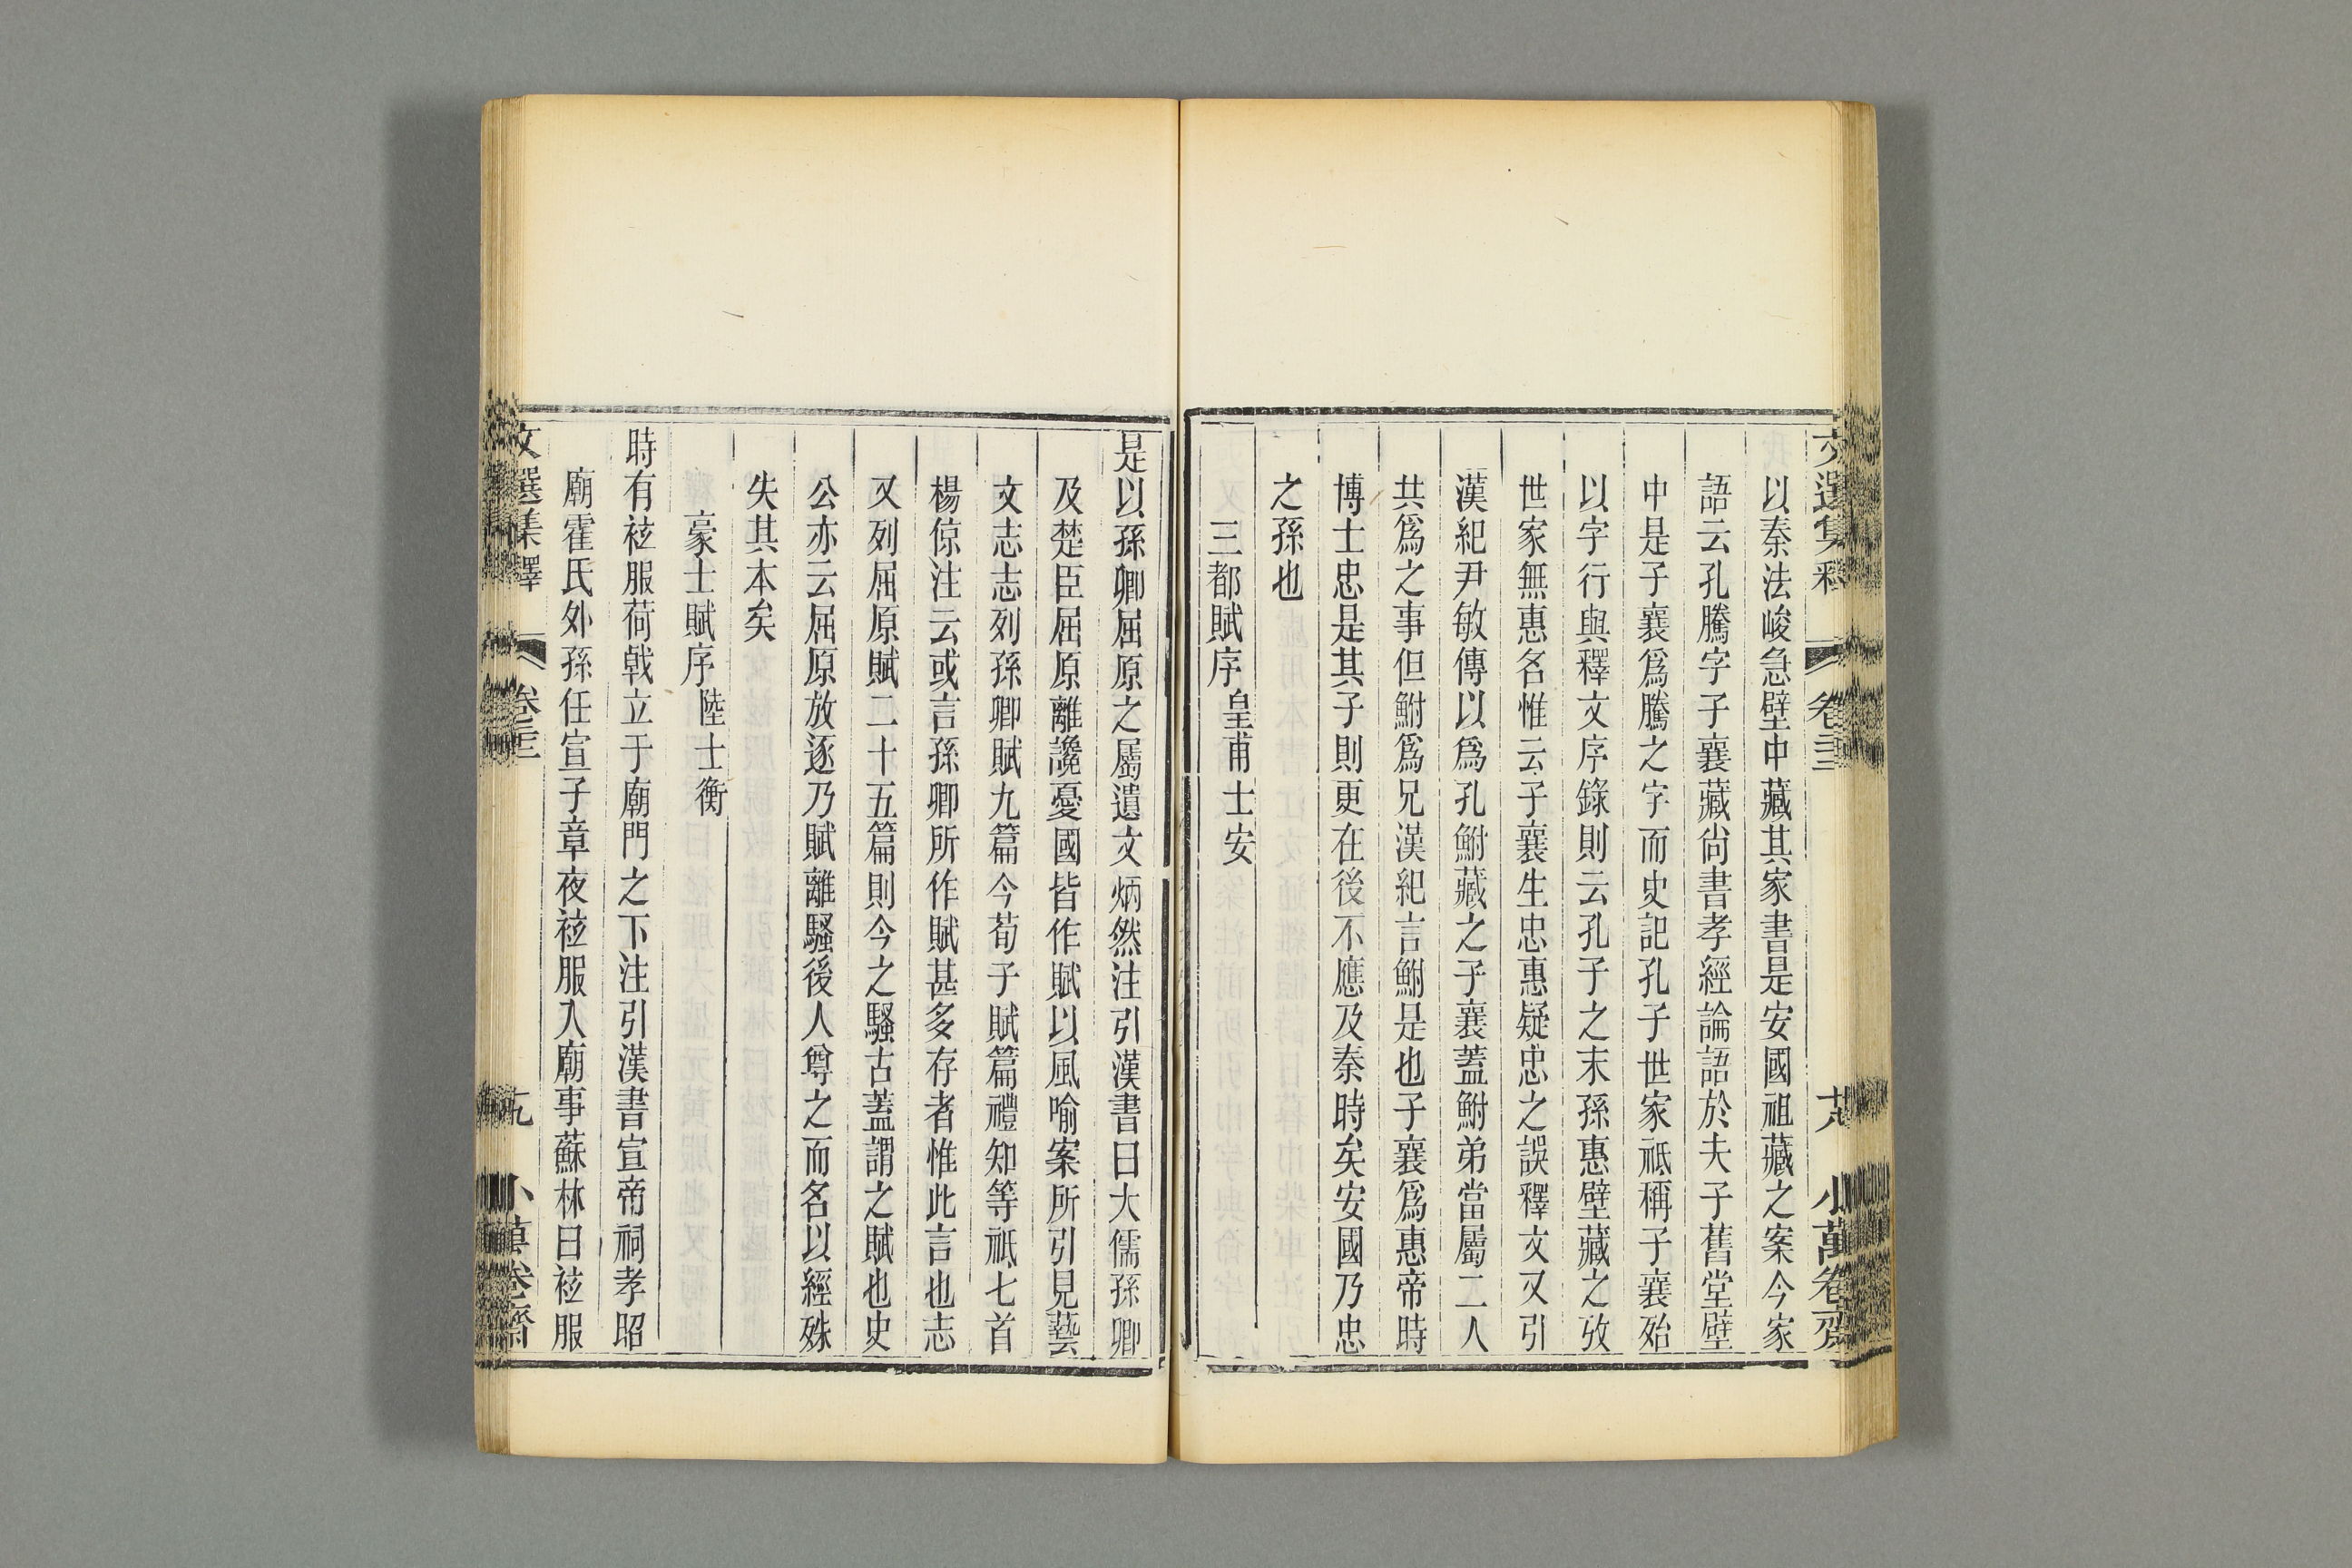 文選集釋 卷二十三 十八 小萬卷齋
以秦法峻急壁中藏其家書是安國祖藏之案今家
語云孔騰字子襄藏尙書孝經論語於夫子舊堂壁
中是子襄爲騰之字而史記孔子世家祗稱子襄殆
以字行與釋文序錄則云孔子之末孫惠壁藏之攷
世家無惠名惟云子襄生忠惠疑忠之誤釋文又引
漢紀尹敏傳以爲孔鮒藏之子襄蓋鮒弟當屬二人
共爲之事但鮒爲兄漢紀言鮒是也子襄爲惠帝時
博士忠是其子則更在後不應及秦時矣安國乃忠
之孫也
三都賦序皇甫士安
是以孫卿屈原之屬遺文炳然注引漢書曰大儒孫卿
及楚臣屈原離讒憂國皆作賦以風喻案所引見藝
文志志列孫卿賦九篇今荀子賦篇禮知等祗七首
楊倞注云或言孫卿所作賦甚多存者惟此言也志
又列屈原賦二十五篇則今之騷古蓋謂之賦也史
公亦云屈原放逐乃賦離騷後人尊之而名以經殊
失其本矣
豪士賦序陸士衡
時有袨服荷戟立于廟門之下注引漢書宣帝祠孝昭
廟霍氏外孫任宣子章夜袨服入廟事蘇林曰袨服
文選集釋 卷二十三 小萬卷齋